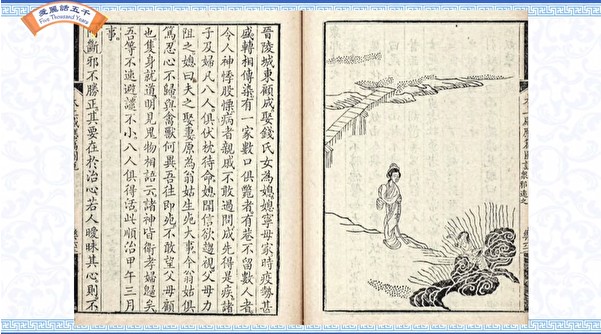 愛麗話五千
Five Thousand Years
感應篇圖說 衆邪遠之
晉陵城東顧成娶錢氏女為媳媳寧母家時疫勢甚
盛轉相傳染有一家數口俱斃者有巷不留數人者
令人神悸股慄病者親戚不敢過問成先得是疾諸
子及婦凡八人俱伏枕待命媳聞信欲趨視父母力
阻之媳曰夫之娶妻原為翁姑生死大事今翁姑俱
篤忍心不歸與禽獸何異吾往即死不敢望父母顧
也隻身就道明見鬼物相語云諸神皆衛孝婦歸矣
吾等不速避譴不小八人俱得活此順治甲午三月
事
斷邪不勝正其要在於治心若人曖昧其心則不